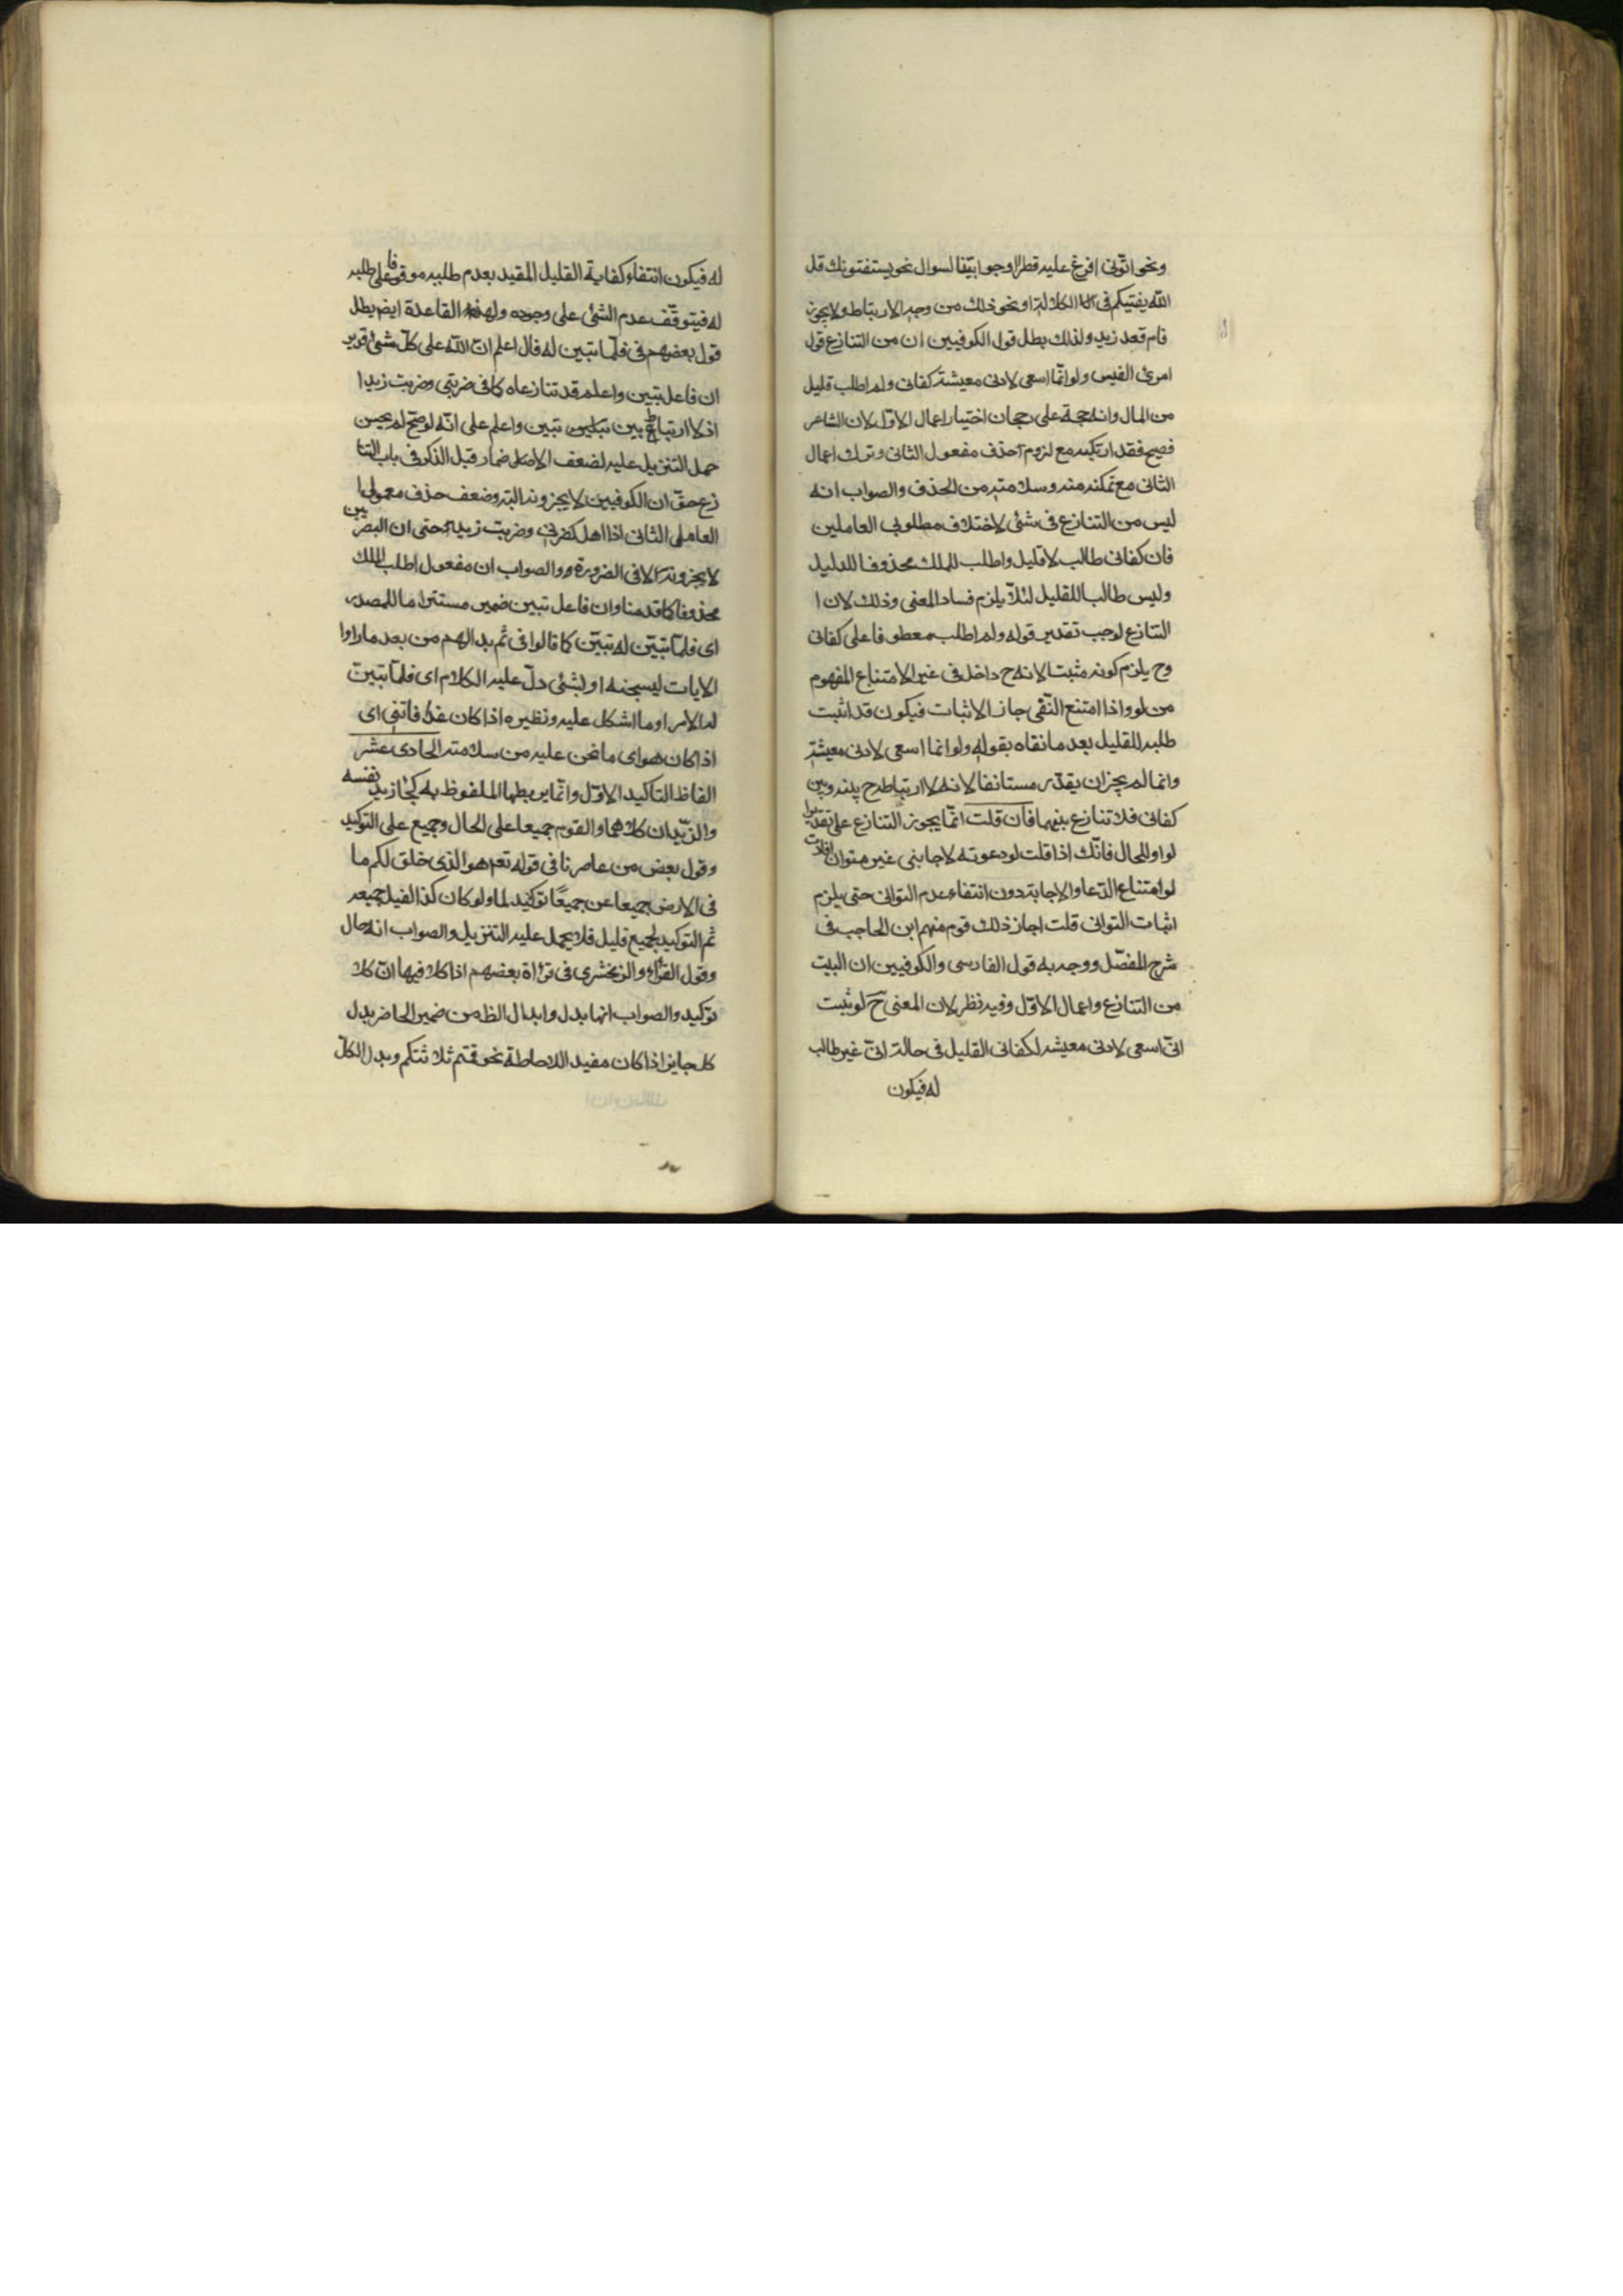 ونحو اتوني افرغ عليه قطرا او جوابيّة لسوال نحو يستفتونك قل
الله يفتيكم فى الكلالة او نحو ذلك من وجه الارتباط ولا يجوز
قام قعد زيد ولذلك بطل قول الكوفيين ان من التنازع قول
امرئ القيس ولو انّما اسعى لادنى معيشة كفانى ولم اطلب قليل
من المال وانه حجة على رجحان اختيار اعمال الاوّل لان الشاعر
فصيح فقد ارتكبه مع لزوم حذف مفعول الثانى وترك اعمال
الثانى مع تمكنه منه وسلامته من الحذف والصواب انه
ليس من التنازع فى شئى لاختلاف مطلوبى العاملين
فان كفانى طالب لاقليل واطلب للملك محذوفا للدليل
وليس طالبا للقليل لئلاّ يلزم فساد المعنى وذلك لان ا
التنازع لوجب تقدير قوله ولم اطلب معطوفا على كفانى
وح يلزم كونه مثبتا لانه ح داخل فى غير الامتناع المفهوم
من لو واذا امتنع النّفى جاز الاثبات فيكون قد اثبت
طلبه للقليل بعد ما نفاه بقوله ولو انما اسعى لادنى معيشة
وانما لم يجز ان يقدّر مستانفا لانه لا ارتباط ح بينه وبين
كفانى فلا تنازع بينهما فان قلت انمّا يجوز التنازع على تقدير
لواو للحال فانّك اذا قلت لو دعوته لاجابنى غير متوان افادت
لو امتناع الدّعا والاجابة دون انتفاء عدم التوانى حتى يلزم
اثبات التوانى قلت اجاز ذلك قوم منهم ابن الحاجب فى
شرح المفصّل ووجه به قول الفارسى والكوفيين ان البيت
من التنازع واعمال الاوّل وفيه نظر لان المعنى ح لو ثبت
انّى اسعى لادنى معيشه لكفانى القليل فى حالة انّى غير طالب
له فيكون
له فيكون انتفاء كفاية القليل المقيد بعدم طلبه موقوفا على طلبه
له فيتوقّف عدم الشئى على وجوده ولهذه القاعدة ايضا بطل
قول بعضهم فى فلمّا تبين له قال اعلم انّ اللّه على كلّ شئ قدير
ان فاعل تبين واعلم قد تنازعاه كما فى ضربنى وضربت زيدا
اذ لا ارتباط بين تبين واعلم على انّه لو صحّ لم يحسن
حمل التنزيل عليه لضعف الاضمار قبل الذكر فى باب التنا
زع حتّى ان الكوفيين لا يجزونه البتة وضعف حذف معمول ا
العامل الثانى اذا اهمل كضربنى وضربت زيد حتى ان البصريين
لا يجزونه الا فى الضرورة والصواب ان مفعول اطلب الملك
محذوفا كما قدمنا وان فاعل تبين ضمير مستتر اما للمصدر
اى فلمّا تبيّن له تبيّن كما قالوا فى ثم بدا لهم من بعد ما راوا
الايات ليسجننه او لشئى دلّ عليه الكلام اى فلمّا تبين
له الامر او ما اشكل عليه ونظيره اذا كان غدا فاتنى اى
اذا كان هو اى ما نحن عليه من سلامته الحادى عشر
الفاظ التاكيد الاوّل وانّما يربطها الملفوظ به كجاء زيد نفسه
والزيّدان كلاهما والقوم جميعا على الحال وجميع على التوكيد
وقول بعض من عاصرنا فى قوله تعم هو الذى خلق لكم ما
فى الارض جميعا عن جميعًا توكيد لما ولو كان كذا لقيل جميعه
ثم التوكيد بجميع قليل فلا يحمل عليه التنزيل والصواب انه حال
وقول الفرّاء والزمخشرى فى قراة بعضهم انا كلا فيها انّ كلا
توكيد والصواب انها بدل وابدال الظ من ضمير الحاضر بدل
كل جايز اذا كان مفيد اللاحاطة نحو قتم ثلاثتكم وبدل الكلّ